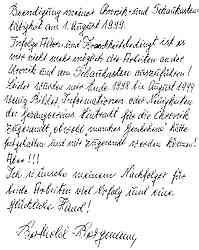 Beendigung meiner Chronik- und Schaukasten-
tätigkeit am 1. August 1999.
Infolge Alters- und Krankheitsbedingt ist es
mir nicht mehr möglich die Arbeiten an der
Chronik und am Schaukasten auszuführen!
Leider wurden mir Ende 1998 bis August 1999
wenig Bilder, Informationen oder Neuigkeiten
der für die Chronik
zugesandt, obwohl manches Geschehene hätte
festgehalten und mir zugesandt werden können!
Aber!!!
Ich wünsche meinem Nachfolger für
die Arbeiten viel Erfolg und eine
glückliche Hand!
Berthold